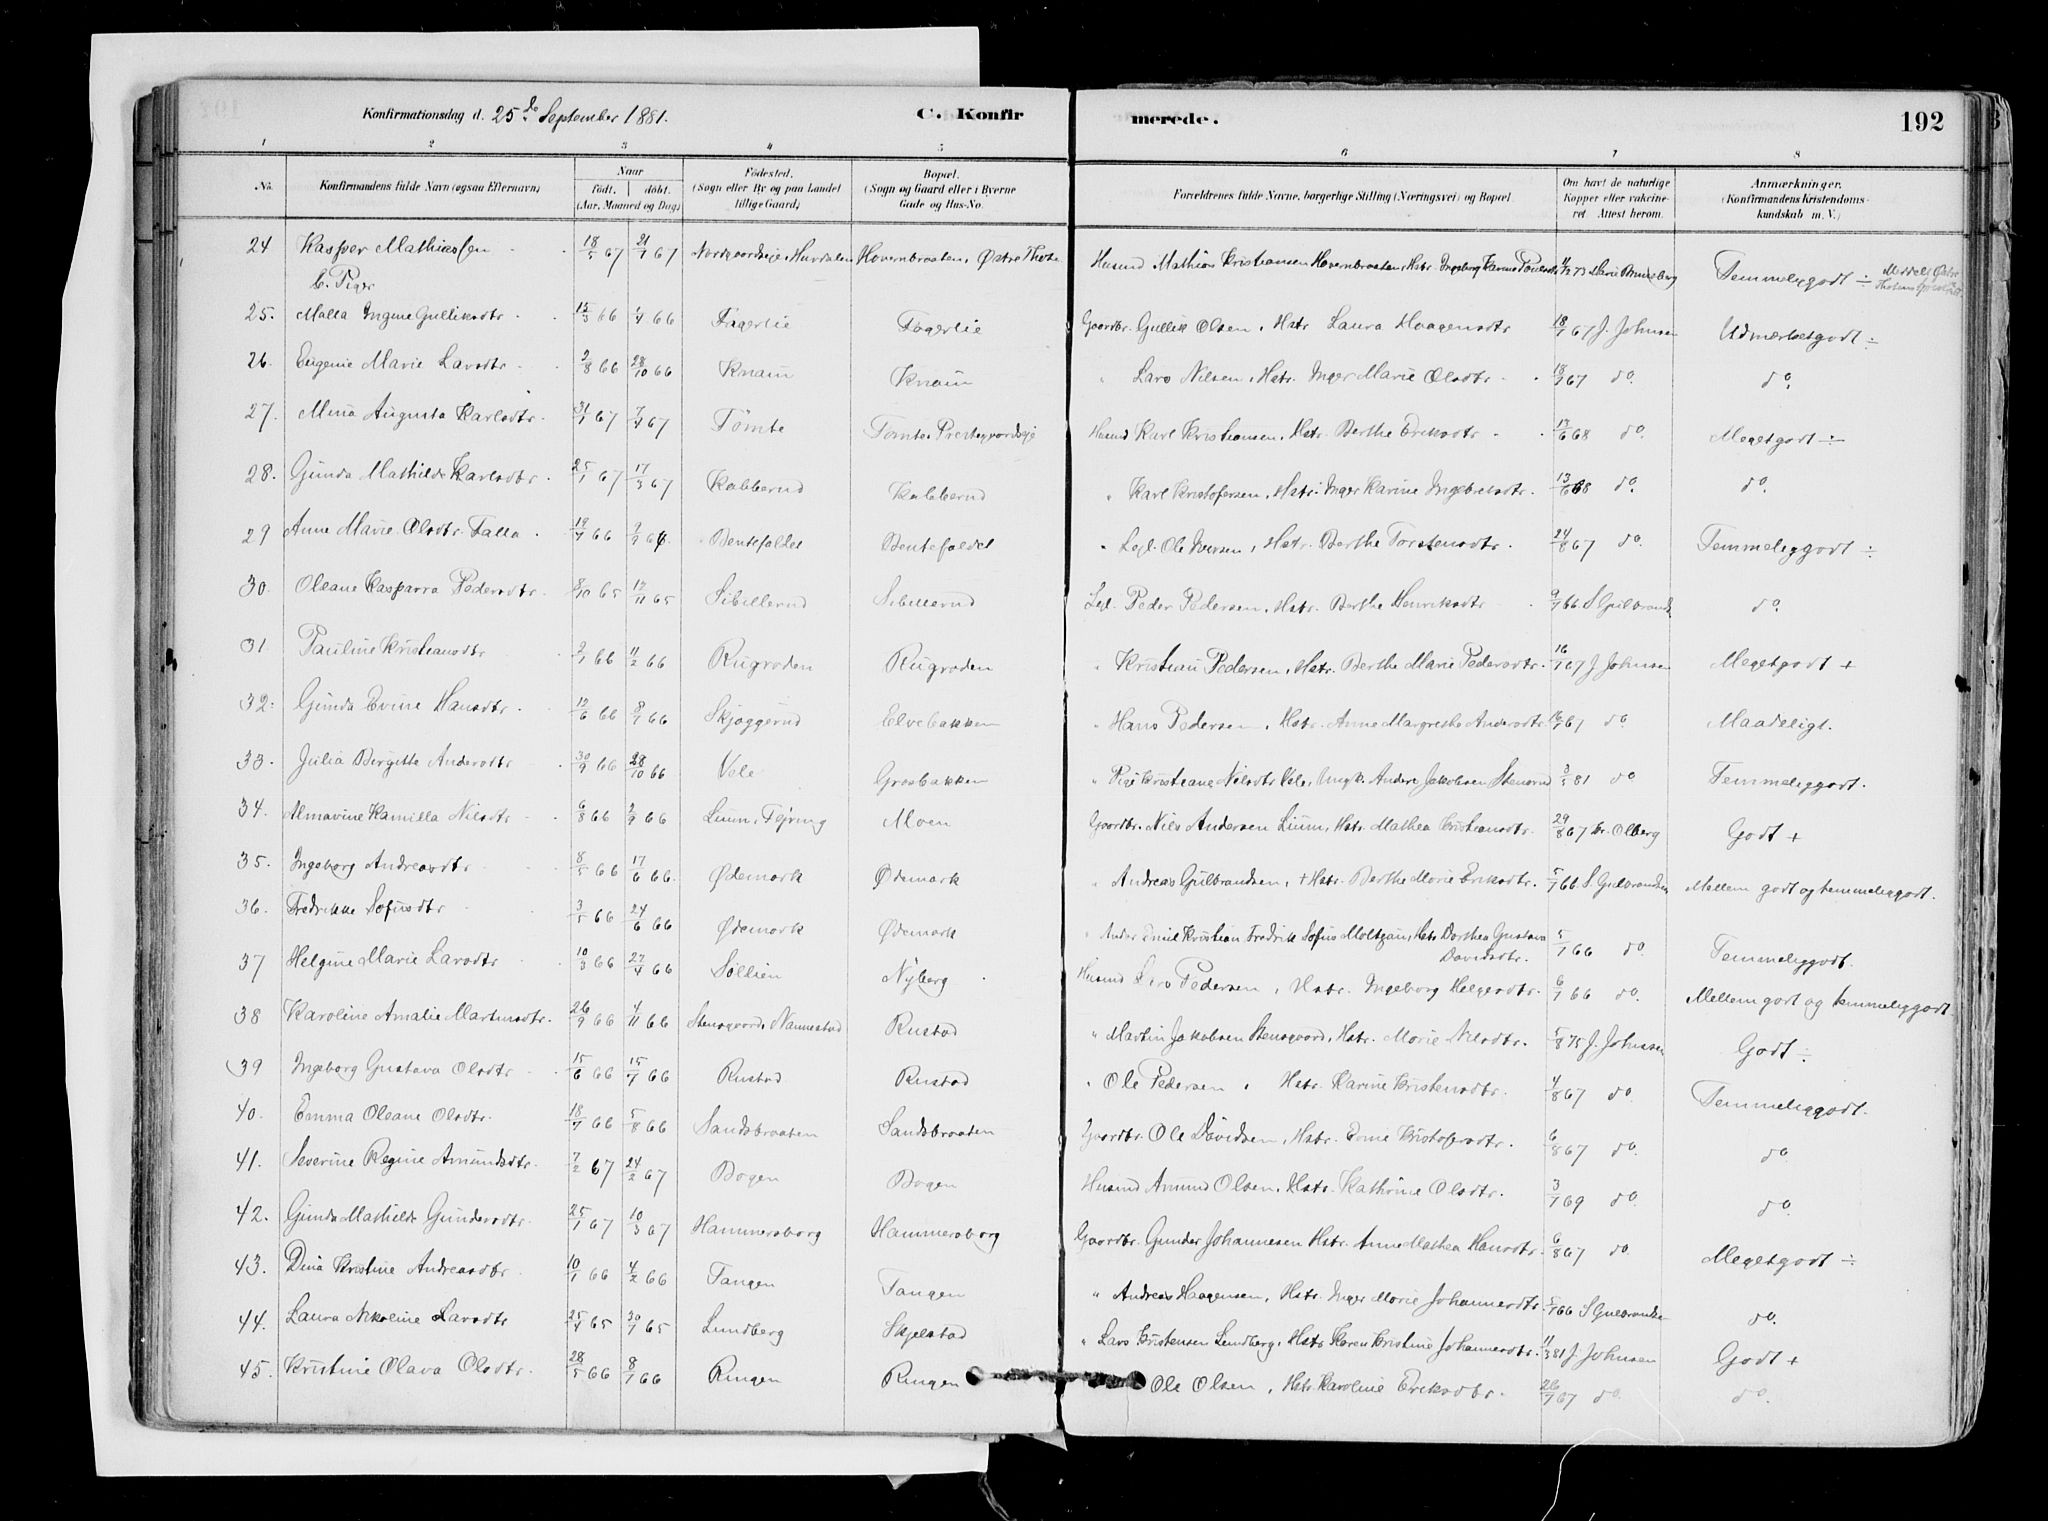 Konfirmationsdag d. 25de September 1881. C. Konfirmerede. 192
1 2 3 4 5 6 7 8
No. Konfirmandens fulde Navn (ogsaa Efternavn) Naar født. døbt. (Aar, Maaned og Dag) Fødested. (Sogn eller By og paa Landet tillige Gaard) Bopæl. (Sogn og Gaard eller i Byerne Gade og Hus-No. Forældrenes fulde Navne, borgerlige Stilling (Næringsvei) og Bopæl Om havt de naturlige Kopper eller vakcineret Attest herom. Anmærkninger. (Konfirmandens Kristendomskundskab m. V.)
24 Kasper Mathiassen 18/5 67 21/7 67 Hurdalen Hovernbraaten, Østre Thoten Husmd Mathias Kristiansen Hovernbraaten, Hstr. Ingeborg Karine Paulsdtr 11/2 73 Temmeliggodt ÷
b. Piger
25. Malla Ingine Gulliksdtr 15/3 66 2/4 66 Fagerlie Fagerlie Gaardbr. Gullik Olsen, Hstr. Laura Haagensdtr 18/7 67 J. Johnsen Udmærketgodt ÷
26. Eugenie Marie Larsdtr 2/8 66 28/10 66 Knain Knain " Lars Nilsen, Hstr. Inger Marie Olsdtr 18/7 67 do. do.
27. Mina Augusta Karlsdtr. 31/1 67 7/4 67 Tømte Tømte, Prestegaardseje Husmd Karl Kristiansen, Hstr. Berthe Eriksdtr 17/6 68 do. Megetgodt ÷
28. Gunda Mathilde Karlsdtr. 25/1 67 17/3 67 Kabberud Kabberud " Karl Kristofersen, Hstr. Inger Karine Ingebretsdtr. 13/6 68 do. do.
29 Anne Marie Olsdtr. Falla 19/7 66 Bentefaldet Bentefaldet " Lejl. Ole Iversen, Hstr. Berthe Torstensdtr. 24/8 67 do. Temmeliggodt ÷
30. Oleane Kasparra Pedersdtr. 8/10 65 12/11 65 Sibillerud Sibillerud Lejl. Peder Pedersen, Hstr. Berthe Henriksdtr 9/7 66 S. Gulbrands do.
31 Pauline Kristiansdtr 2/1 66 11/2 66 Rugroden Rugroden " Kristian Pedersen, Hstr. Berthe Marie Pedersdtr. 16/7 67 J. Johnsen Megetgodt +
32. Gunda Evine Hansdtr. 12/6 66 8/7 66 Skjøggerud Elvebakken " Hans Pedersen, Hstr. Anne Margrethe Andersdtr 16/7 67 do Maadeligt.
33. Julia Birgitte Andersdtr 30/9 66 28/10 66 Vele Grosbakken " Pige Kristiane Nilsdtr Vele, Ungk. Anders Jakobsen Stensrud 3/5 81 do Temmeliggodt.
34. Almavine Kamilla Nilsdtr 6/8 66 2/9 66 Lium, Fejring Moen Gaardbr. Nils Andersen Lium, Hstr. Mathea Kristiansdtr. 29/8 67 Olberg Godt +
35. Ingeborg Andreasdtr 8/5 66 17/6 66. Ødemark Ødemark " Andreas Gulbrandsen, + Hstr. Berthe Marie Eriksdtr. 5/7 66 S. Gulbrandsen Mellem godt og temmeliggodt.
36. Fredrikke Sofusdtr 3/5 66 24/6 66 Ødemark Ødemark " Emil Kristian Fredrik Sofus Moltzau, Hstr. Dorthea Gustava Davidsdtr. 5/7 66 do. Temmeliggodt.
37 Helgine Marie Larsdtr 10/3 66 27/4 66 Søllien Nyberg Husmd Lars Pedersen, Hstr. Ingeborg Helgesdtr. 6/7 66 do. Mellem godt og temmeliggodt
38 Karoline Amalie Martinsdtr. 26/9 66 4/11 66 Stensgaard, Nannestad Rustad " Martin Jakobsen Stensgaard, Hstr. Marie Nilsdtr. 5/8 75 J. Johnsen Godt ÷
39 Ingeborg Gustava Olsdtr 15/6 66 15/7 66 Rustad Rustad " Ole Pedersen, Hstr. Karine Kristensdtr. 4/8 67 do. Temmeliggodt.
40. Emma Oleane Olsdtr. 18/7 66 5/8 66 Sandsbraaten Sandsbraaten Gaardbr. Ole Davidsen, Hstr. Kristofersdtr. 6/8 67 do. do
41. Severine Regine Amundsdtr. 7/2 67 24/2 67 Bogen Bogen Husmd Amund Olsen, Hstr. Kathrine Olsdtr. 3/7 69 do. do.
42. Gunda Mathilde Gundersdtr. 25/1 67 10/3 67 Hammersborg Hammersborg Gaardbr. Gunder Johannesen Hstr. Anne Mathea Hansdtr. 6/8 67 do. Megetgodt ÷
43. Dina Kristine Andreasdtr 10/1 66 4/2 66 Tangen Tangen " Andreas Haagensen, Hstr. Inger Marie Johannesdtr. 5/7 66 S. Gulbrandsen do.
44. Laura Nikoline Larsdtr 25/4 65 30/7 65 Lundberg Skjelstad " Lars Kristensen Lundberg, Hstr Karen Kristine Johannesdtr. 11/3 81 J. Johnsen Godt +
45. Kristine Olava Olsdtr. 28/5 66 8/7 66 Ringen Ringen Ole Olsen, Hstr. Karoline Eriksdtr. 26/7 67 do. do.